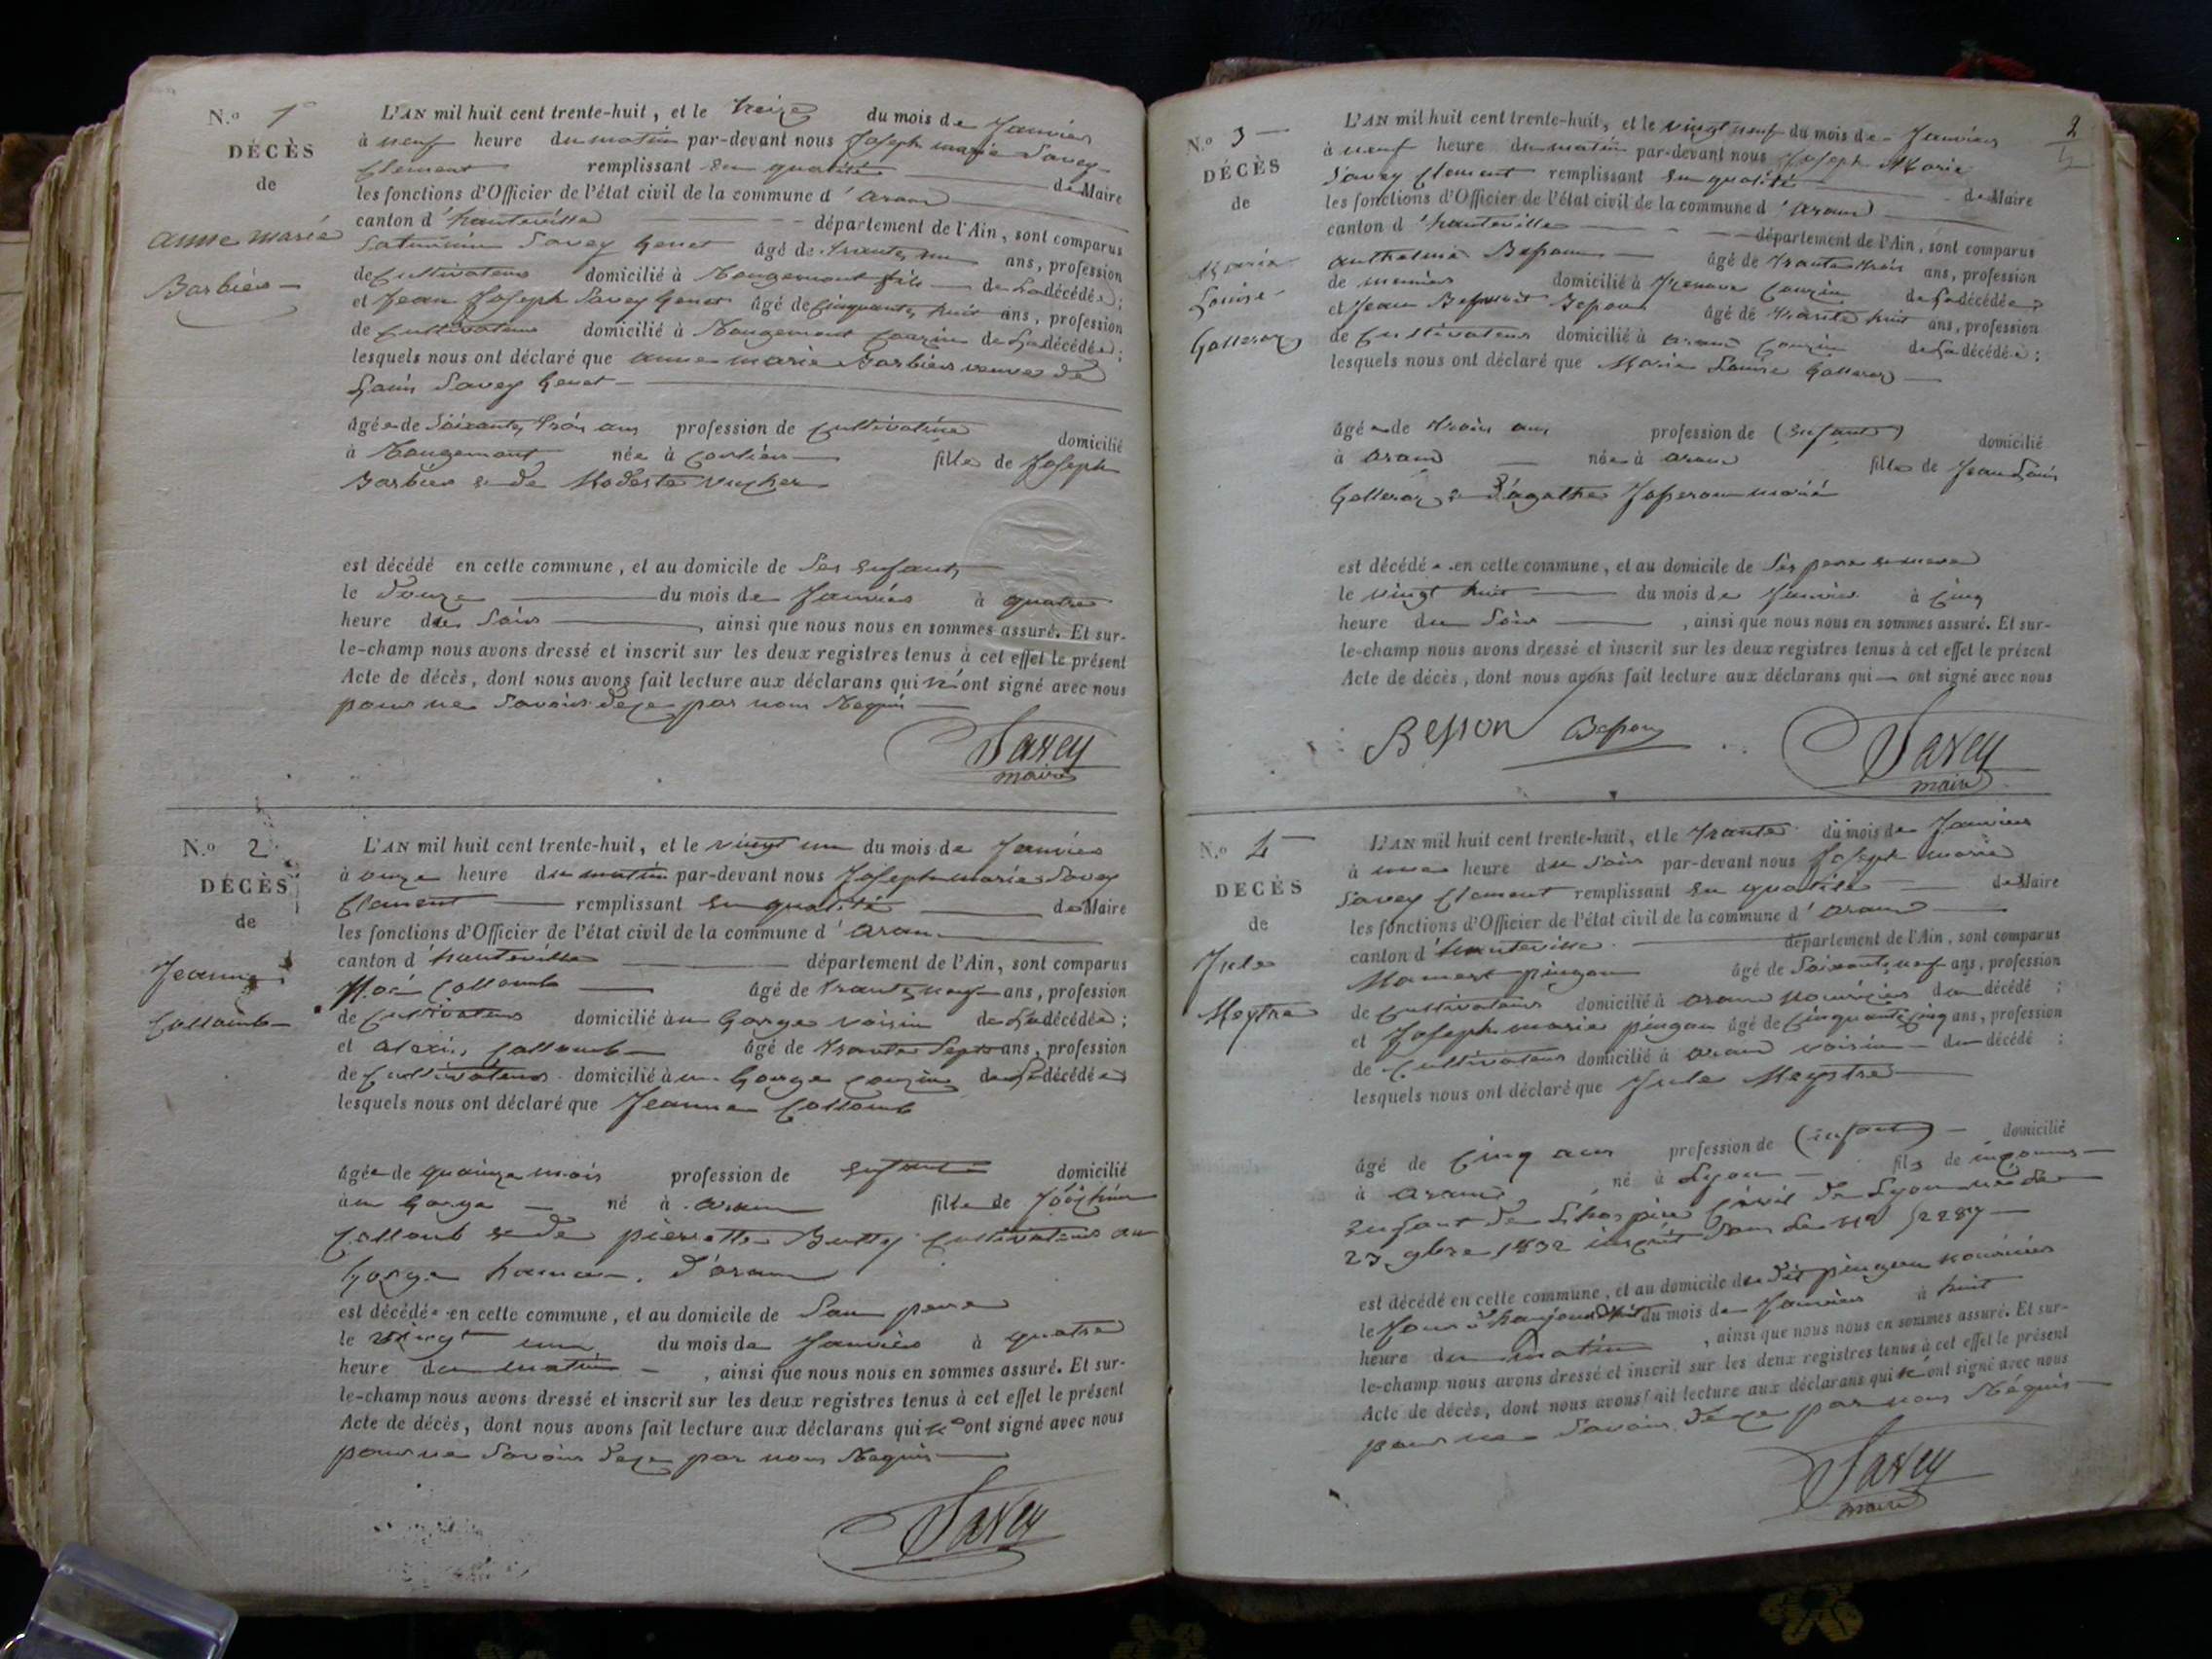 N.º 1
DÉCÈS
de
anne marie
Barbier
L'AN mil huit cent trente-huit, et le treize du mois de Janvier
à neuf heure du matin par-devant nous Joseph marie Savey
Clement remplissant en qualité de Maire
les fonctions d'Officier de l'état civil de la commune d'aran
canton d'hauteville département de l'Ain, sont comparus
Saturnin Savey Genet âgé de trante un ans, profession
de Cultivateur domicilié à Rougemont fils de La décédée;
et Jean Joseph Savey Genet âgé de Cinquante huit ans, profession
de Cultivateur domicilié à Rougemont Couzin de La décédée;
lesquels nous ont déclaré que anne marie Barbier veuve de
Louis Savey Genet
âgée de Soixante trois ans profession de Cultivatrice domicilié
à Rougemont née à Corlier fille de Joseph
Barbier & de Modeste
est décédé en cette commune, et au domicile de Ses enfants
le Douze du mois de Janvier à quatre
heure du Soir, ainsi que nous nous en sommes assuré. Et sur-
le-champ nous avons dressé et inscrit sur les deux registres tenus à cet effet le présent
Acte de décès, dont nous avons fait lecture aux déclarans qui n'ont signé avec nous
pour ne Savoir de ce par nous Requis
Savey
maire
N.º 2
DÉCÈS
de
Jeanne
Collomb
L'AN mil huit cent trente-huit, et le vingt un du mois de Janvier
à onze heure du matin par-devant nous Joseph marie Savey
Clement remplissant en qualité de Maire
les fonctions d'Officier de l'état civil de la commune d'aran
canton d'hauteville département de l'Ain, sont comparus
Noé Collomb âgé de trante neuf ans, profession
de Cultivateur domicilié au Gorge voisin de La décédée;
et alexis Collomb âgé de trante Sept ans, profession
de Cultivateur domicilié au Gorge Couzin de La décédée
lesquels nous ont déclaré que Jeanne Collomb
âgée de quainze mois profession de enfant domicilié
au Gorge né à aran fille de
Collomb & de pierrette Cultivateur au
Gorge d'aran
est décédée en cette commune, et au domicile de Son pere
le vingt un du mois de Janvier à quatre
heure du matin, ainsi que nous nous en sommes assuré. Et sur-
le-champ nous avons dressé et inscrit sur les deux registres tenus à cet effet le présent
Acte de décès, dont nous avons fait lecture aux déclarans qui n'ont signé avec nous
pour ne Savoir de ce par nous Requis
Savey
2
N.º 3
DÉCÈS
de
Maria
Louise
Golleroz
L'AN mil huit cent trente-huit, et le vingt neuf du mois de Janvier
à neuf heure du matin par-devant nous Joseph Marie
Savey Clement remplissant en qualité de Maire
les fonctions d'Officier de l'état civil de la commune d'aran
canton d'hauteville département de l'Ain, sont comparus
anthelme Besson âgé de trante trois ans, profession
de domicilié à Couzin de La décédée;
et Jean Besson âgé de trante huit ans, profession
de Cultivateur domicilié à aran Couzin de La décédée;
lesquels nous ont déclaré que Marie Louise Golleroz
âgée de trois ans profession de (enfant) domicilié
à aran née à aran fille de Jean Louis
Golleroz & d'agathe
est décédée en cette commune, et au domicile de Ses pere & mere
le vingt huit du mois de Janvier à Cinq
heure du Soir, ainsi que nous nous en sommes assuré. Et sur-
le-champ nous avons dressé et inscrit sur les deux registres tenus à cet effet le présent
Acte de décès, dont nous avons fait lecture aux déclarans qui ont signé avec nous
Besson Besson Savey
maire
N.º 4
DÉCÈS
de
Jule
Meytre
L'AN mil huit cent trente-huit, et le trante du mois de Janvier
à une heure du Soir par-devant nous Joseph marie
Savey Clement remplissant en qualité de Maire
les fonctions d'Officier de l'état civil de la commune d'aran
canton d'hauteville département de l'Ain, sont comparus
Mamert pingon âgé de Soixante neuf ans, profession
de Cultivateur domicilié à aran nouricier du décédé;
et Joseph marie pingon âgé de Cinquante Cinq ans, profession
de Cultivateur domicilié à aran voisin du décédé;
lesquels nous ont déclaré que Jule Meystre
âgé de Cinq ans profession de (enfant) domicilié
à aran né à Lyon fils de inconnus
enfant de L'hospice Civil de Lyon né de
23 9bre 1832 inscrit Sous Le Nº
est décédé en cette commune, et au domicile du dit pingon nouricier
le Jour d'haujourdhui du mois de Janvier à huit
heure du matin, ainsi que nous nous en sommes assuré. Et sur-
le-champ nous avons dressé et inscrit sur les deux registres tenus à cet effet le présent
Acte de décès, dont nous avons fait lecture aux déclarans qui n'ont signé avec nous
pour ne Savoir de ce par nous Réquis
Savey
maire